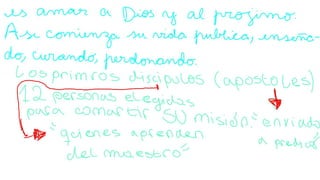 es amar a Dios y al projimo.
Asi comienza su vida publica, enseñan-
do, curando, perdonando.
Los primros discipulos (apostoles)
12 personas elegidas
para comartir su misión. "enviado
"quienes aprenden a predicar"
del maestro"